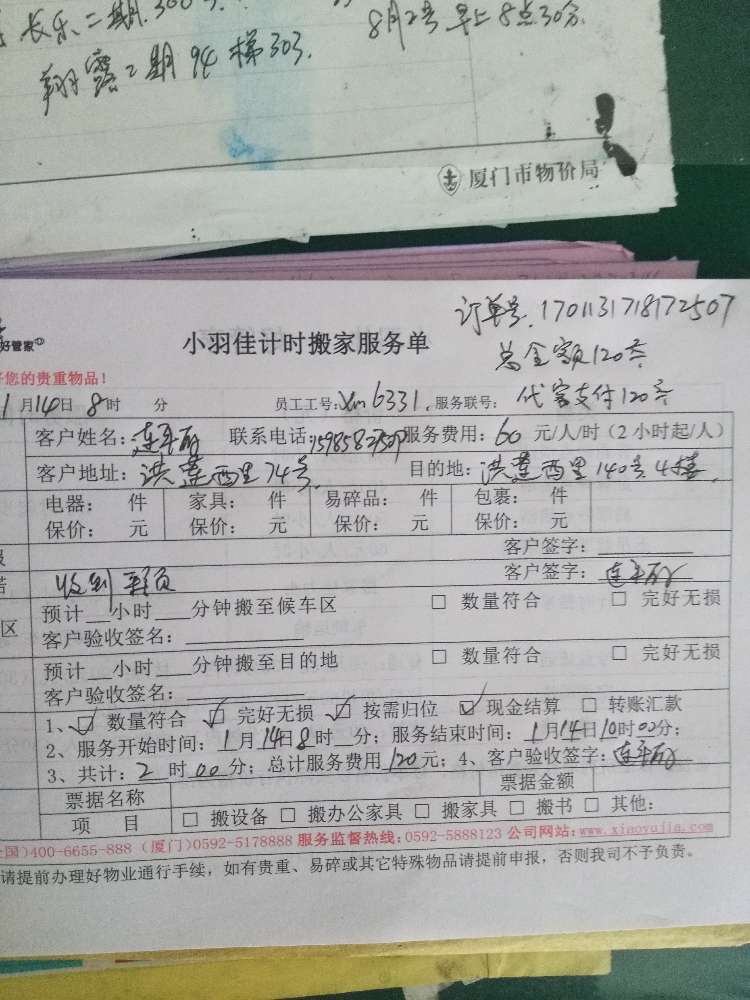 长乐二期.300号
8月2号早上8点30分.
翔鹭二期94梯303.
厦门市物价局
订单号.170113171817 2507
好管家
小羽佳计时搬家服务单
总金额120元
您的贵重物品！
1月14日8时 分 员工工号:Xm6331. 服务联号: 代客支付120元
客户姓名: 联系电话: 服务费用: 60 元/人/时（2小时起/人）
客户地址: 洪莲西里74号. 目的地: 洪莲西里140号4楼.
电器: 件 家具: 件 易碎品: 件 包裹: 件
保价: 元 保价: 元 保价: 元 保价: 元
客户签字:
收到 客户签字:
预计__小时___分钟搬至候车区 □ 数量符合 □ 完好无损
区 客户验收签名:
预计__小时___分钟搬至目的地 □ 数量符合 □ 完好无损
客户验收签名:
1、☑ 数量符合 ☑ 完好无损 ☑ 按需归位 ☑ 现金结算 □ 转账汇款
2、服务开始时间: 1月14日8时__分; 服务结束时间: 1月14日10时00分;
3、共计: 2 时00分; 总计服务费用 120元; 4、客户验收签字:
票据名称 票据金额
项 目 □ 搬设备 □ 搬办公家具 □ 搬家具 □ 搬书 □ 其他:
国)400-6655-888（厦门)0592-5178888 服务监督热线:0592-5888123 公司网站:www.xiaoyujia.com
请提前办理好物业通行手续，如有贵重、易碎或其它特殊物品请提前申报，否则我司不予负责。